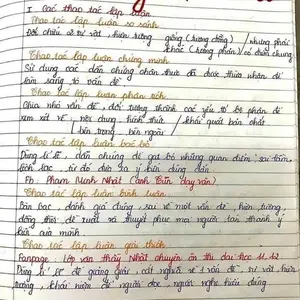 I Các thao tác lập luận
Thao tác lập luận so sánh
Đối chiếu 2 sự vật, hiện tượng giống (tương đồng) / nhưng phải
khác (tương phản) / có điểm chung
Thao tác lập luận chứng minh
Sử dụng các dẫn chứng chân thực đã được thừa nhận để
làm sáng tỏ vấn đề
Thao tác lập luận phân tích
Chia nhỏ vấn đề, đối tượng thành các yếu tố bộ phận để
xem xét về nội dung, hình thức / khái quát bản chất
bên trong, bên ngoài
Thao tác lập luận bác bỏ
Dùng lí lẽ, dẫn chứng để gạt bỏ những quan điểm sai lầm,
lệch lạc, từ đó đưa ra ý kiến đúng đắn
Fb: Phạm Minh Nhật (Anh Tiến dạy văn)
Thao tác lập luận bình luận
Bàn bạc, đánh giá đúng, sai về một vấn đề, hiện tượng,
đồng thời đề xuất và thuyết phục mọi người tán thành ý
kiến của mình
Thao tác lập luận giải thích
Fanpage: Lớp văn thầy Nhật chuyên ôn thi đại học 11,12
Dùng lí lẽ để giảng giải, cắt nghĩa về 1 vấn đề, sự vật, hiện
tượng, khái niệm để người đọc, người nghe hiểu đúng